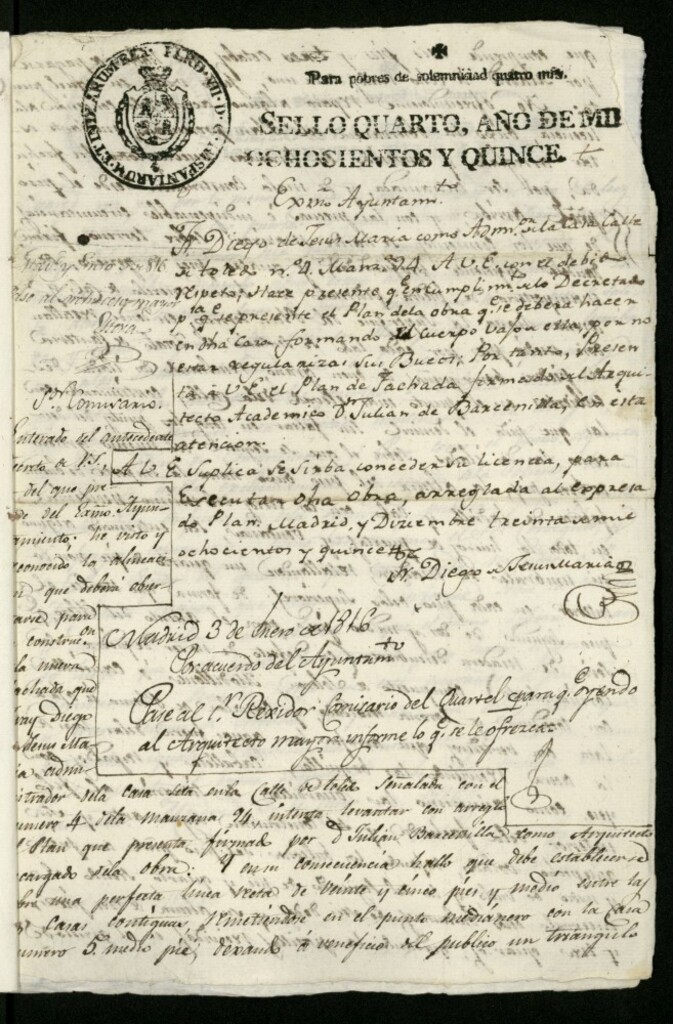 FERD. VII. D. G. HISPANIARUM ET INDIARUM REX
Para pobres de solemnidad quatro mrs.
SELLO QUARTO, AÑO DE MIL
OCHOCIENTOS Y QUINCE.
Exmo. Ayuntamto.
Fr. Diego de Jesus Maria como Admor. de la Casa Calle
de Toledo n.º 4. Manz. 24. A V.E. con el debido
respeto, Hace presente qe. en cumplimto. de lo Decretado
pta. qe. se presente el Plan de la obra qe. se debera hacer
en dha Casa formando el cuerpo vajo a ella, por no
estar regularizar sus Buecos; Por tanto, Presen
ta a V.E. el Plan de Fachada firmado del Arqui-
tecto Academico Dn. Julian de Barcenilla, en esta
atencion:
A V.E. Suplica se sirba conceder su licencia, para
Executar dha obra, arreglada al expresa
do Plan. Madrid, y Diziembre treinta de mil
ochocientos y quince
Fr. Diego de Jesus Maria
Madrid 3 de Enero de 1816
En acuerdo del Ayuntamto.
Pase al Sr. Rexidor Comisario del Quartel para qe. oyendo
al Arquitecto mayor informe lo qe. se le ofrezca
Madrid y Enero 5 de 1816
Pase al Arquitecto mayor
Sr. Comisario.
Enterado del antecedente
del que pre
de del Exmo. Ayun-
tamiento; he visto y
reconocido la alineacio
n que deberá obser-
varse para
construcon.
la nueva
fachada que
Fray Diego
de Jesus Ma-
ria admi-
nistrador dela casa sita en la Calle de toledo señalada con el
numero 4 dela manzana 24, intenta levantar con arreglo
al Plan que presenta firmado por Dn. Julián Barcenilla como Arquitecto
encargado dela obra: Y en su consecuencia hallo que debe establecerse
sobre una perfecta linea recta de veinte y cinco pies y medio entre las
Casas contiguas, remetiendose en el punto medianero con la Casa
numero 5. medio pie, dexando á beneficio del publico un triangulo